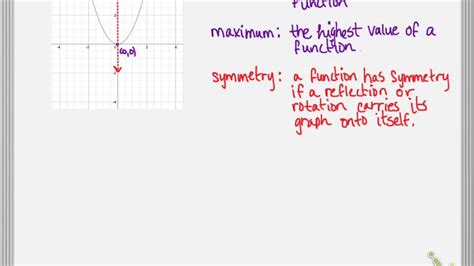 function
maximum: the highest value of a
function
symmetry: a function has symmetry
if a reflection or
rotation carries its
graph onto itself.
(0,0)
-4
-2
2
4
2
-4